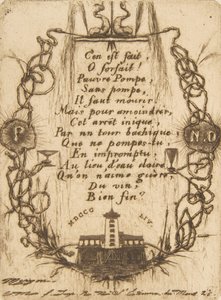 C'en est fait
O forfait!
Pauvre Pompe,
Sans pompe,
Il faut mourir,
Mais pour amoindrir,
Cet arrêt inique,
Par un tour bachique,
Que ne pompes-tu
En impromptu,
Au lieu d'eau claire,
Qu'on n'aime guère,
Du vin,
Bien fin?
P
MDCCC LIV